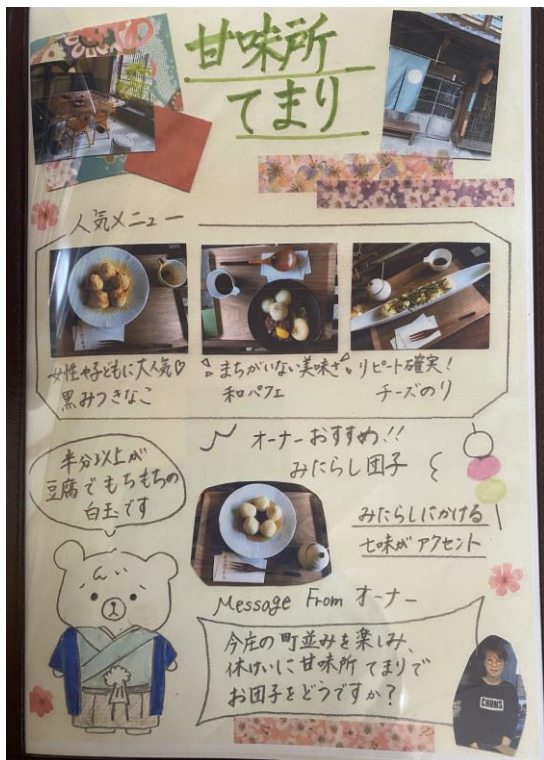 甘味所
てまり
人気メニュー
女性や子どもに大人気♡
黒みつきなこ
まちがいない美味さ
和パフェ
リピート確実!
チーズのり
オーナーおすすめ!!
みたらし団子
半分以上が
豆腐でもちもちの
白玉です
みたらしにかける
七味がアクセント
Message From オーナー
今庄の町並みを楽しみ、
休けいに甘味所 てまりで
お団子をどうですか?
CHUMS